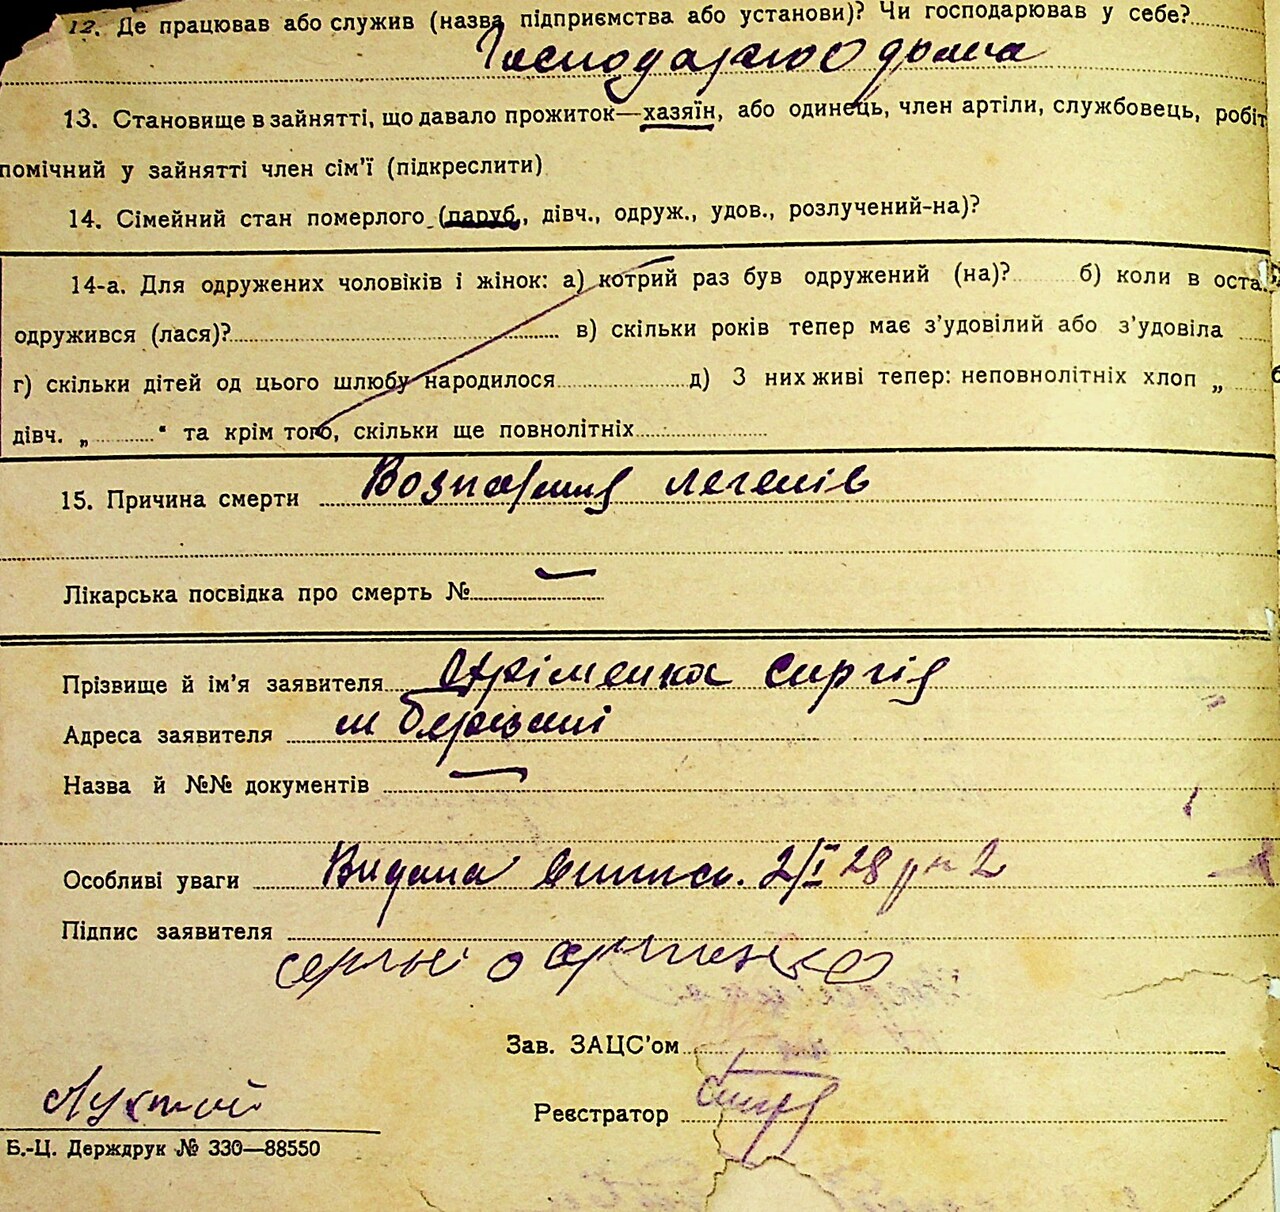 12. Де працював або служив (назва підприємства або установи)? Чи господарював у себе?
Господарював дома
13. Становище в зайнятті, що давало прожиток—хазяїн, або одинець, член артіли, службовець, робіт
помічний у зайнятті член сім'ї (підкреслити)
14. Сімейний стан померлого (паруб., дівч., одруж., удов., розлучений-на)?
14-а. Для одружених чоловіків і жінок: а) котрий раз був одружений (на)? б) коли в оста
одружився (лася)? в) скільки років тепер має з'удовілий або з'удовіла
г) скільки дітей од цього шлюбу народилося д) З них живі тепер: неповнолітніх хлоп „
дівч. „ “ та крім того, скільки ще повнолітніх
15. Причина смерти Воспаления легенів
Лікарська посвідка про смерть № —
Прізвище й ім'я заявителя Сергія
Адреса заявителя м
Назва й №№ документів —
Особливі уваги Видана 2/I 28 р № 2
Підпис заявителя
Зав. ЗАЦС'ом
Реєстратор
Б.-Ц. Держдрук № 330—88550